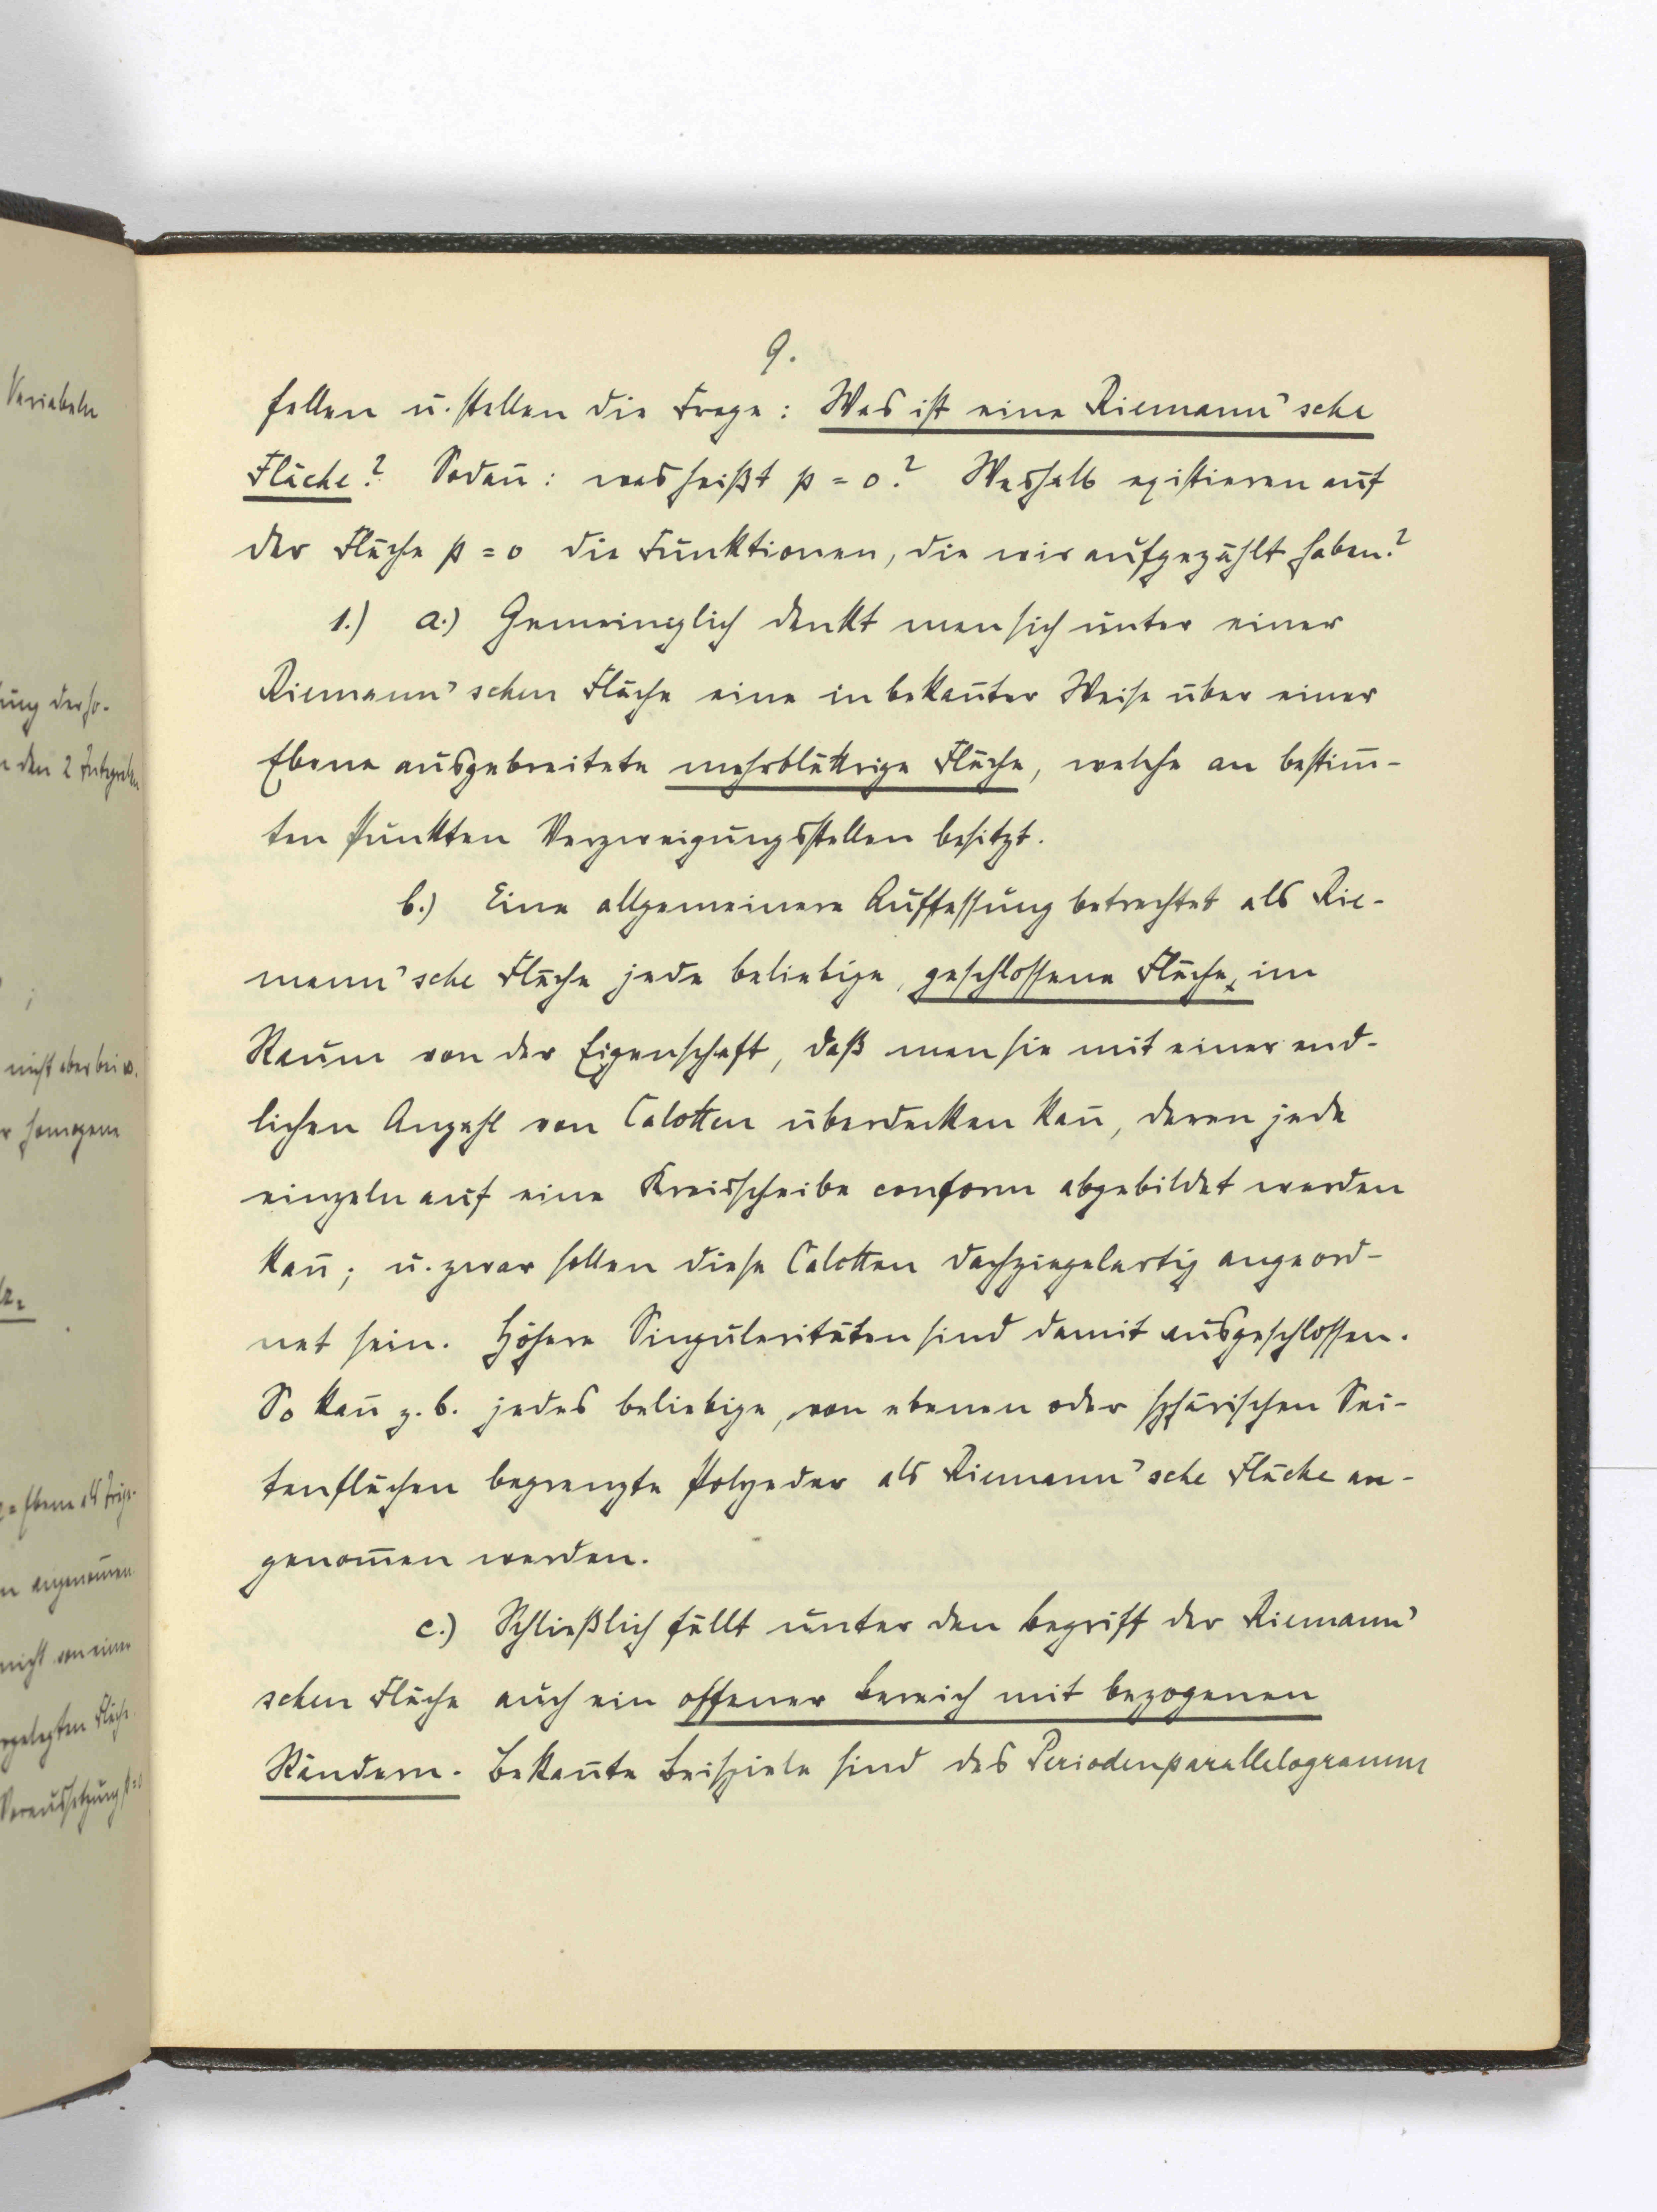 9.
fallen u. stellen die Frage: Was ist eine Riemann'sche
Fläche? Sodan̄: was heißt p = 0? Weshalb existieren auf
der Fläche p = 0 die Funktionen, die wir aufgezählt haben?
1.) a.) Gemeiniglich denkt man sich unter einer
Riemann'schen Fläche eine in bekan̄ter Weise über einer
Ebene ausgebreitete mehrblättrige Fläche, welche an bestim̄-
ten Punkten Verzweigungsstellen besitzt.
b.) Eine allgemeinere Auffassung betrachtet als Rie-
mann'sche Fläche jede beliebige, geschlossene Fläche, im
Raum von der Eigenschaft, daß man sie mit einer end-
lichen Anzahl von Calotten überdecken kan̄, deren jede
einzeln auf eine Kreisscheibe conform abgebildet werden
kan̄; u. zwar sollen diese Calotten dachziegelartig angeord-
net sein. Höhere Singularitäten sind damit ausgeschlossen.
So kan̄ z. b. jedes beliebige, von ebenen oder sphärischen Sei-
tenflächen begrenzte Polyeder als Riemann'sche Fläche an-
genom̄en werden.
c.) Schließlich fällt unter den Begriff der Riemann'
schen Fläche auch ein offener Bereich mit bezogenen
Rändern. Bekan̄te Beispiele sind das Periodenparallelogramm
Variabeln
den 2 Integralen
nicht aber bei
homogene
angenom̄en
nicht von einer
Fläche
Voraussetzung p=0